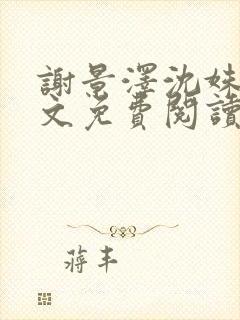 謝景澤沈妹
文免費閱讀
蔣丰